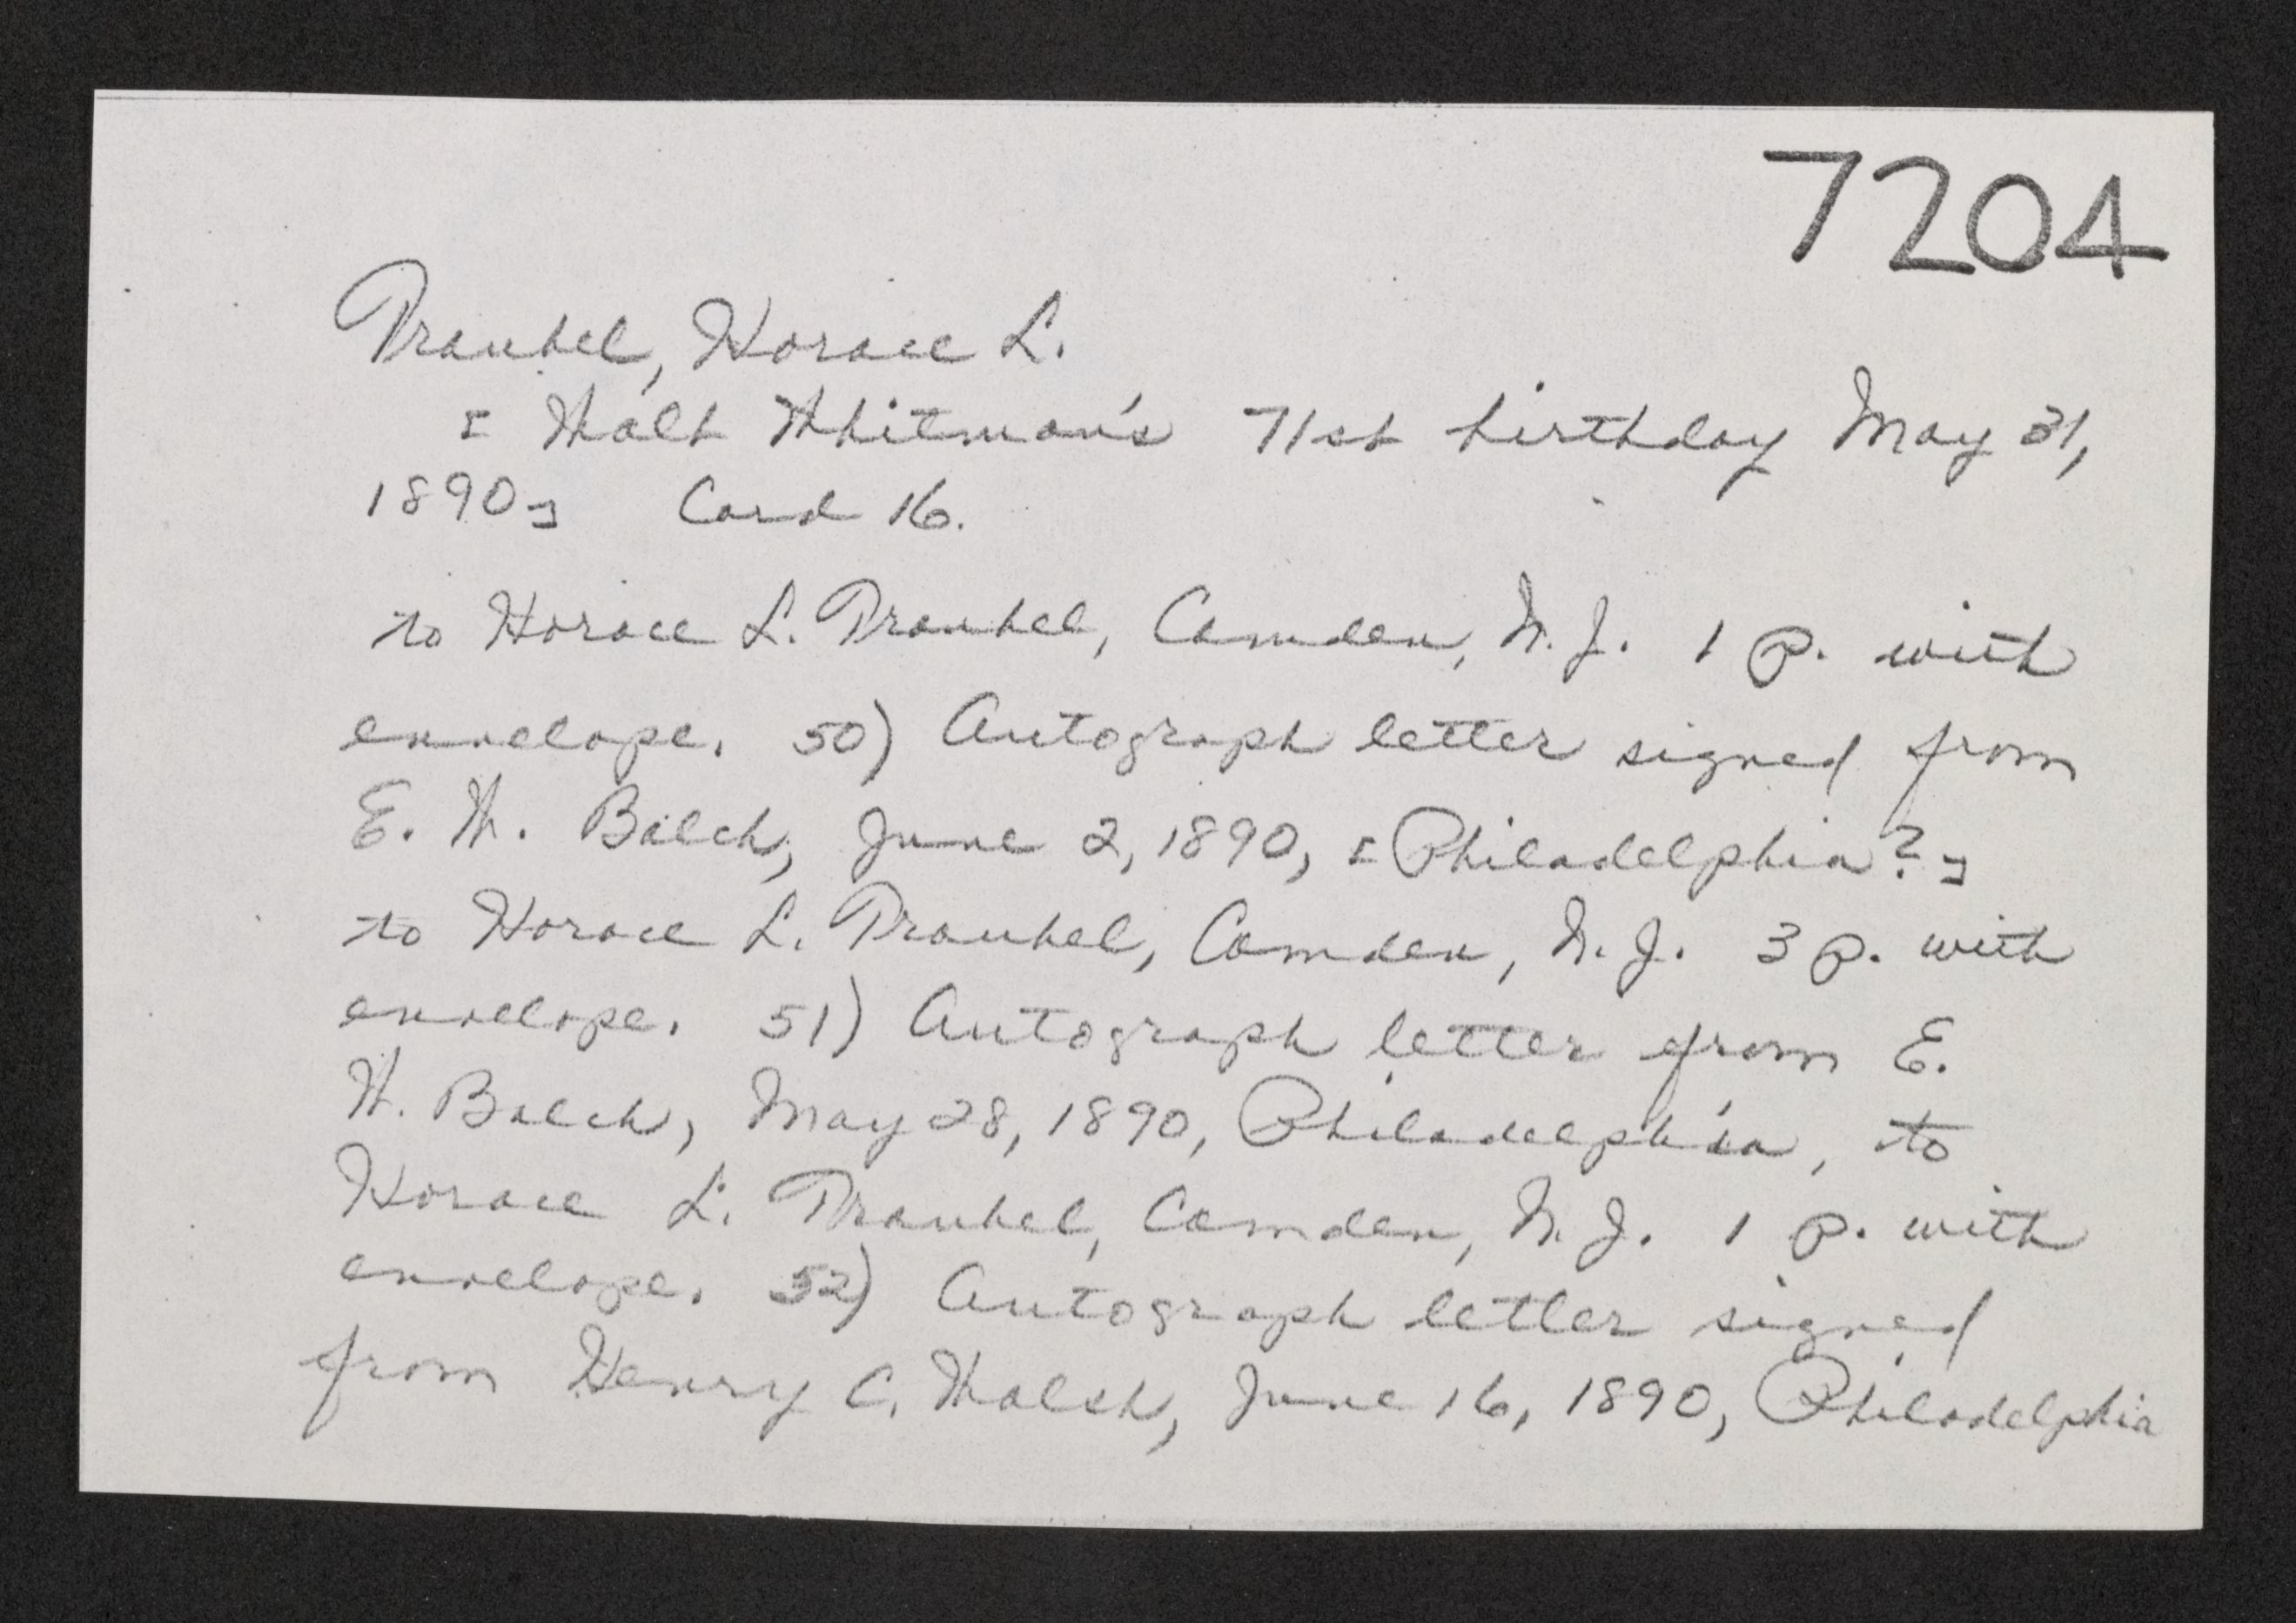 7204
Traubel, Horace L.
[Walt Whitman's 71st birthday May 31,
1890] Card 16.
to Horace L. Traubel, Camden, N.J. 1 p. with
envelope. 50) Autograph letter signed from
E. W. Balch, June 2, 1890, [Philadelphia?]
to Horace L. Traubel, Camden, N.J. 3 p. with
envelope. 51) Autograph letter from E.
W. Balch, May 28, 1890, Philadelphia, to
Horace L. Traubel, Camden, N.J. 1 p. with
envelope. 52) Autograph letter signed
from Henry C. Walsh, June 16, 1890, Philadelphia